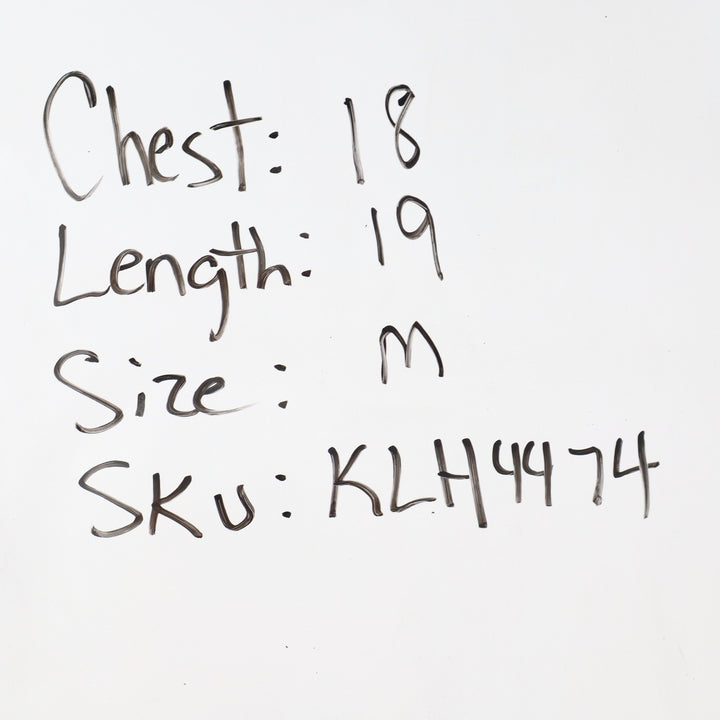 Chest: 18
Length: 19
Size: M
SKU: KLH4474